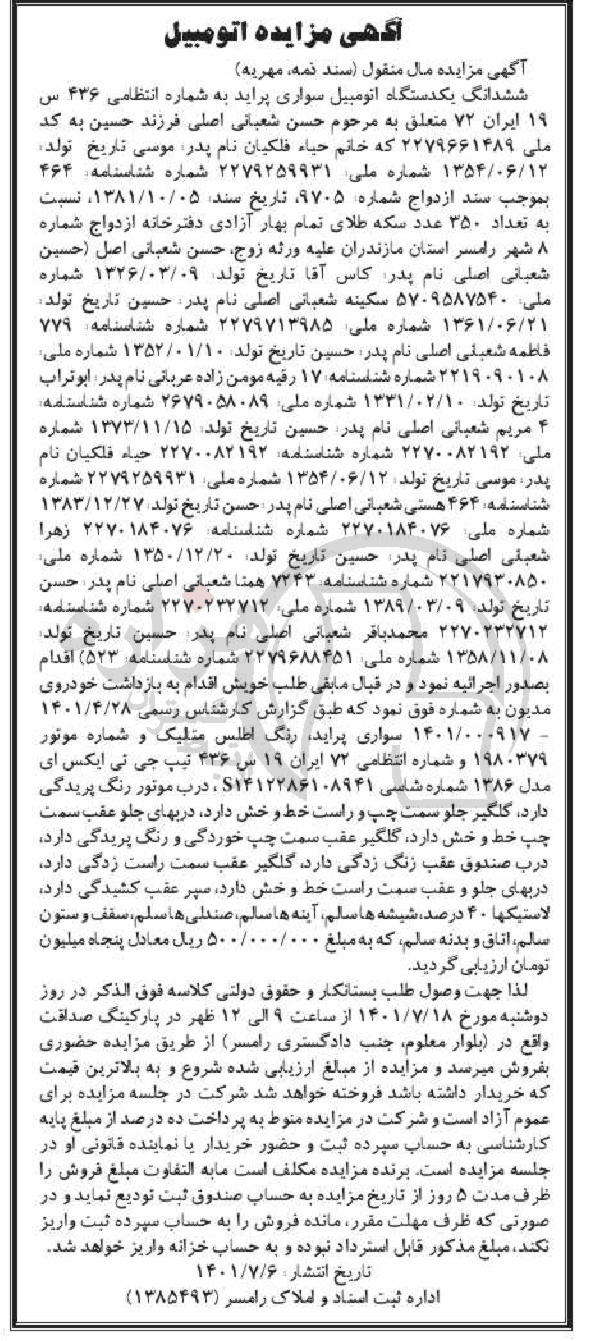 آگهی مزایده اتومبیل
آگهی مزایده مال منقول (سند ذمه، مهریه)
ششدانگ یکدستگاه اتومبیل سواری پراید به شماره انتظامی ۴۳۶ س
۱۹ ایران ۷۲ متعلق به مرحوم حسن شعبانی اصلی فرزند حسین به کد
ملی ۲۲۷۹۶۶۱۴۸۹ که خانم حیاء فلکیان نام پدر: موسی تاریخ تولد:
۱۳۵۴/۰۶/۱۲ شماره ملی: ۲۲۷۹۲۵۹۹۳۱ شماره شناسنامه: ۴۶۴
بموجب سند ازدواج شماره: ۹۷۰۵، تاریخ سند: ۱۳۸۱/۱۰/۰۵، نسبت
به تعداد ۳۵۰ عدد سکه طلای تمام بهار آزادی دفترخانه ازدواج شماره
۸ شهر رامسر استان مازندران علیه ورثه زوج، حسن شعبانی اصل (حسین
شعبانی اصلی نام پدر: کاس آقا تاریخ تولد: ۱۳۲۶/۰۳/۰۹ شماره
ملی: ۵۷۰۹۵۸۷۵۴۰ سکینه شعبانی اصلی نام پدر: حسین تاریخ تولد:
۱۳۶۱/۰۶/۲۱ شماره ملی: ۲۲۷۹۷۱۳۹۸۵ شماره شناسنامه: ۷۷۹
فاطمه شعبانی اصلی نام پدر: حسین تاریخ تولد: ۱۳۵۲/۰۱/۱۰ شماره ملی:
۲۲۱۹۰۹۰۱۰۸ شماره شناسنامه: ۱۷ رقیه مومن زاده عربانی نام پدر: ابوتراب
تاریخ تولد: ۱۳۳۱/۰۲/۱۰ شماره ملی: ۲۶۷۹۰۵۸۰۸۹ شماره شناسنامه:
۴ مریم شعبانی اصلی نام پدر: حسین تاریخ تولد: ۱۳۷۳/۱۱/۱۵ شماره
ملی: ۲۲۷۰۰۸۲۱۹۲ شماره شناسنامه: ۲۲۷۰۰۸۲۱۹۲ حیاء فلکیان نام
پدر: موسی تاریخ تولد: ۱۳۵۴/۰۶/۱۲ شماره ملی: ۲۲۷۹۲۵۹۹۳۱ شماره
شناسنامه: ۴۶۴ هستی شعبانی اصلی نام پدر: حسن تاریخ تولد: ۱۳۸۳/۱۲/۲۷
شماره ملی: ۲۲۷۰۱۸۴۰۷۶ شماره شناسنامه: ۲۲۷۰۱۸۴۰۷۶ زهرا
شعبانی اصلی نام پدر: حسین تاریخ تولد: ۱۳۵۰/۱۲/۲۰ شماره ملی:
۲۲۱۷۹۳۰۸۵۰ شماره شناسنامه: ۷۲۴۳ همتا شعبانی اصلی نام پدر: حسن
تاریخ تولد: ۱۳۸۹/۰۳/۰۹ شماره ملی: ۲۲۷۰۲۳۲۷۱۲ شماره شناسنامه:
۲۲۷۰۲۳۲۷۱۲ محمدباقر شعبانی اصلی نام پدر: حسین تاریخ تولد:
۱۳۵۸/۱۱/۰۸ شماره ملی: ۲۲۷۹۶۸۸۴۵۱ شماره شناسنامه: ۵۲۳) اقدام
بصدور اجرائیه نمود و در قبال مابقی طلب خویش اقدام به بازداشت خودروی
مدیون به شماره فوق نمود که طبق گزارش کارشناس رسمی ۱۴۰۱/۴/۲۸
- ۱۴۰۱/۰۰۰۹۱۷ سواری پراید، رنگ اطلس متلیک و شماره موتور
۱۹۸۰۳۷۹ و شماره انتظامی ۷۲ ایران ۱۹ س ۴۳۶ تیپ جی تی ایکس ای
مدل ۱۳۸۶ شماره شاسی S۱۴۱۲۲۸۶۱۰۸۹۴۱ ، درب موتور رنگ پریدگی
دارد، گلگیر جلو سمت چپ و راست خط و خش دارد، دربهای جلو عقب سمت
چپ خط و خش دارد، گلگیر عقب سمت چپ خوردگی و رنگ پریدگی دارد،
درب صندوق عقب زنگ زدگی دارد، گلگیر عقب سمت راست زدگی دارد،
دربهای جلو و عقب سمت راست خط و خش دارد، سپر عقب کشیدگی دارد،
لاستیکها ۴۰ درصد، شیشه ها سالم، آینه ها سالم، صندلی ها سلم، سقف و ستون
سالم، اتاق و بدنه سالم، که به مبلغ ۵۰۰/۰۰۰/۰۰۰ ریال معادل پنجاه میلیون
تومان ارزیابی گردید.
لذا جهت وصول طلب بستانکار و حقوق دولتی کلاسه فوق الذکر در روز
دوشنبه مورخ ۱۴۰۱/۷/۱۸ از ساعت ۹ الی ۱۲ ظهر در پارکینگ صداقت
واقع در (بلوار معلوم، جنب دادگستری رامسر) از طریق مزایده حضوری
بفروش میرسد و مزایده از مبلغ ارزیابی شده شروع و به بالاترین قیمت
که خریدار داشته باشد فروخته خواهد شد شرکت در جلسه مزایده برای
عموم آزاد است و شرکت در مزایده منوط به پرداخت ده درصد از مبلغ پایه
کارشناسی به حساب سپرده ثبت و حضور خریدار یا نماینده قانونی او در
جلسه مزایده است. برنده مزایده مکلف است مابه التفاوت مبلغ فروش را
ظرف مدت ۵ روز از تاریخ مزایده به حساب صندوق ثبت تودیع نماید و در
صورتی که ظرف مهلت مقرر، مانده فروش را به حساب سپرده ثبت واریز
نکند، مبلغ مذکور قابل استرداد نبوده و به حساب خزانه واریز خواهد شد.
تاریخ انتشار: ۱۴۰۱/۷/۶
اداره ثبت اسناد و املاک رامسر (۱۳۸۵۴۹۳)